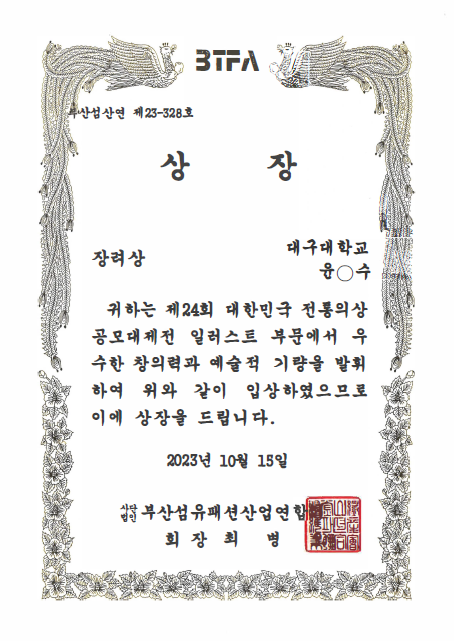 BTFA
부산섬산연 제23-328호
상 장
장려상
대구대학교
윤○수
귀하는 제24회 대한민국 전통의상
공모대제전 일러스트 부문에서 우
수한 창의력과 예술적 기량을 발휘
하여 위와 같이 입상하였으므로
이에 상장을 드립니다.
2023년 10월 15일
사단법인 부산섬유패션산업연합회
회 장 최 병